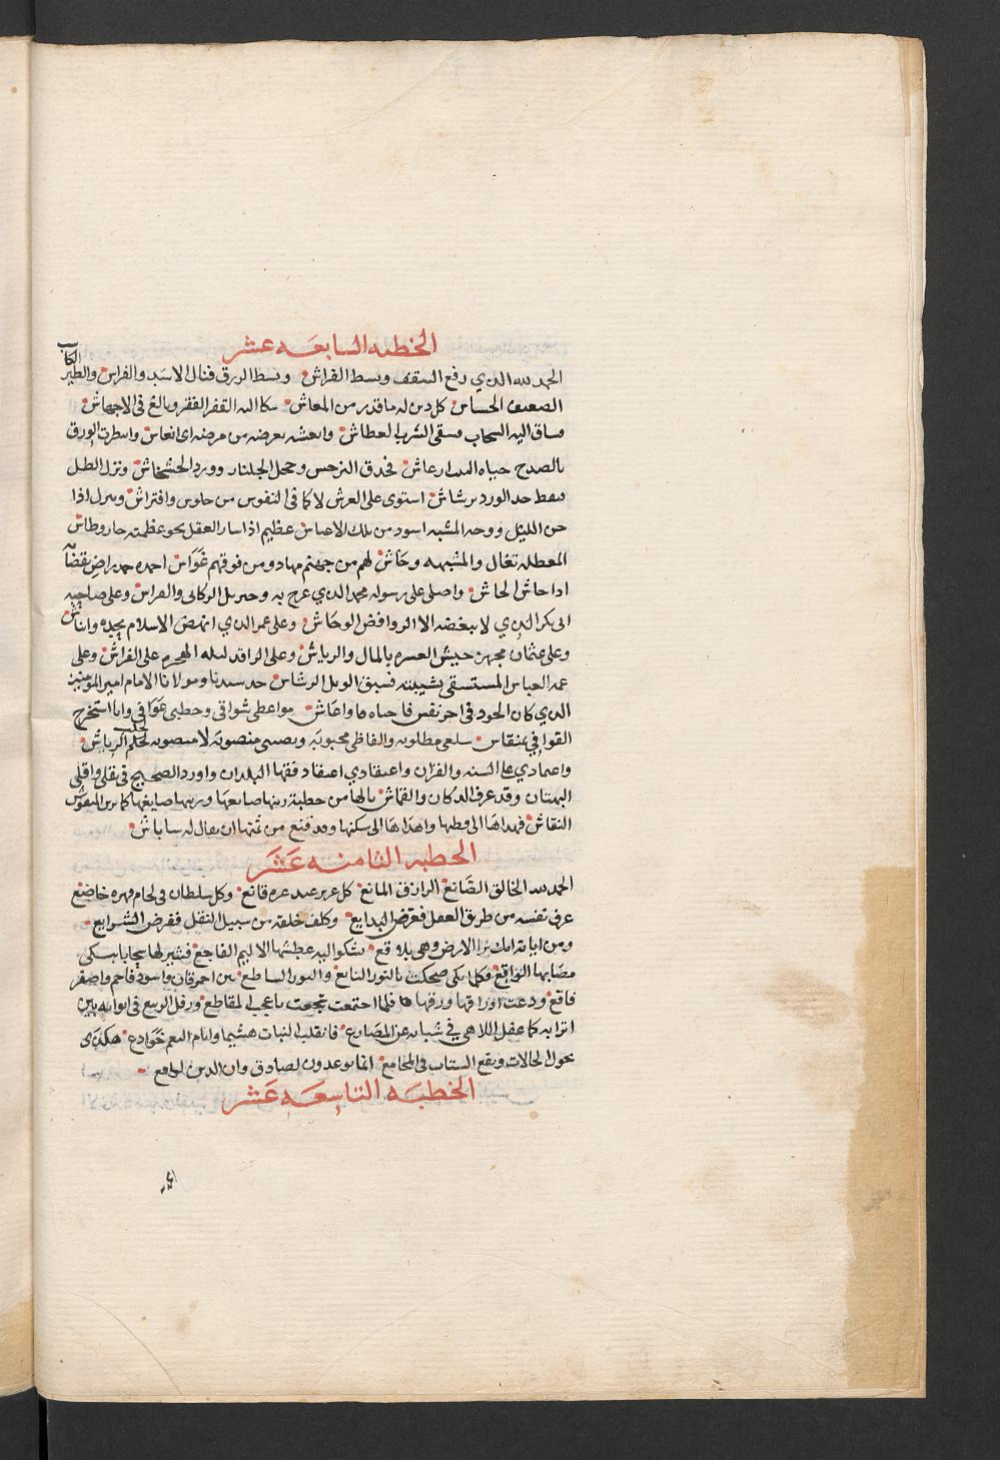 الخطبه السابعه عشر
الحمد لله الذي رفع السقف وبسط الفراش وبسط الرزق فنال الاسد والفراش والطير
الضعيف الحساس كل دس له ما قدر من المعاش سكا اليه القفر الفقر وبالغ في الاجهاش
فساق اليه السحاب فسقى الشربا لعطاش وانعشه بعرضه من مرضه اي انعاش وانتظرت الورق
بالصدح حياه فحدق النرجس وخجل الجلنار وورد الخشخاش ونزل الطل
فنقط خد الورد برشاش استوى على العرش لا كما في النفوس من جلوس وافتراش وينزل اذا
جن الليل ووجه المشبه اسود من تلك الاعباش عظيم اذا سار العقل نحو عظمته حار وطاش
المعطله تغال والمشبهه وحاش لهم من جهنم مهاد ومن فوقهم غواش احمده حمد راض بقضائه
اذا حاش الحاش واصلي على رسوله محمد الذي عرج به وجبريل الركابي والفراش وعلى صاحبه
ابي بكر الذي لا يبغضه الا الروافض الوحاش وعلى عمر الذي انهض الاسلام بجده وانتاش
وعلى عثمان مجهز جيش العسره بالمال والرياش وعلى الراقد ليله الهجره على الفراش وعلى
عمه العباس المستسقى بشيبته فسبق الوبل الرشاش جد سيدنا ومولانا الامام امير المؤمنين
الذي كان الجود في اخر نفس فاحياه واعاش مواعظي شواقي وخطبي عوافي وانا استخرج
القوافي بمنقاش سلعي مطلوبه والفاظي محبوبه منصوبه لا منصوبه
واعتمادي على السنه والقران واعتقادي اعتقاد فقها البلدان واورد الصحيح في نقلي واقلي
البهتان وقد عرف الدكان والقماش يالها من خطبة زينها صانعها وزينها صايغها كما زين المنقوش
النقاش فهداها الى قطبها واهداها الى سكنها وقد قنع من ثمنها ان يقال له ساباش
الخطبه الثامنه عشر
الحمد لله الخالق الصانع الرازق المانع كل عزيز عنده قانع وكل سلطان في لجام قهره خاضع
عرف نفسه من طريق العقل فعرض البدايع وكلف خلقه من سبيل النقل ففرض الشرايع
ومن اياته انك ترا الارض وهي بلاقع تشكو اليه عطشها الاليم الفاجع فيثير لها سحابا يبكي
مصابها الواقع فكلما بكى ضحكت بالنور اليانع والنور الساطع بين احمر قان واسود فاحم واصفر
فاقع ودعت اوراقها ورقها فلما اجتمعت سجعت باعجب المقاطع ورفل الربيع في اثوابه بين
اترابه كما غفل اللاهي في شبابه عن المصارع فانقلب النبات هشيما وايام النعم خوادع هكذى
تحول الحالات ويقع الشتات في المجامع انما توعدون لصادق وان الدين لواقع
الخطبه التاسعه عشر